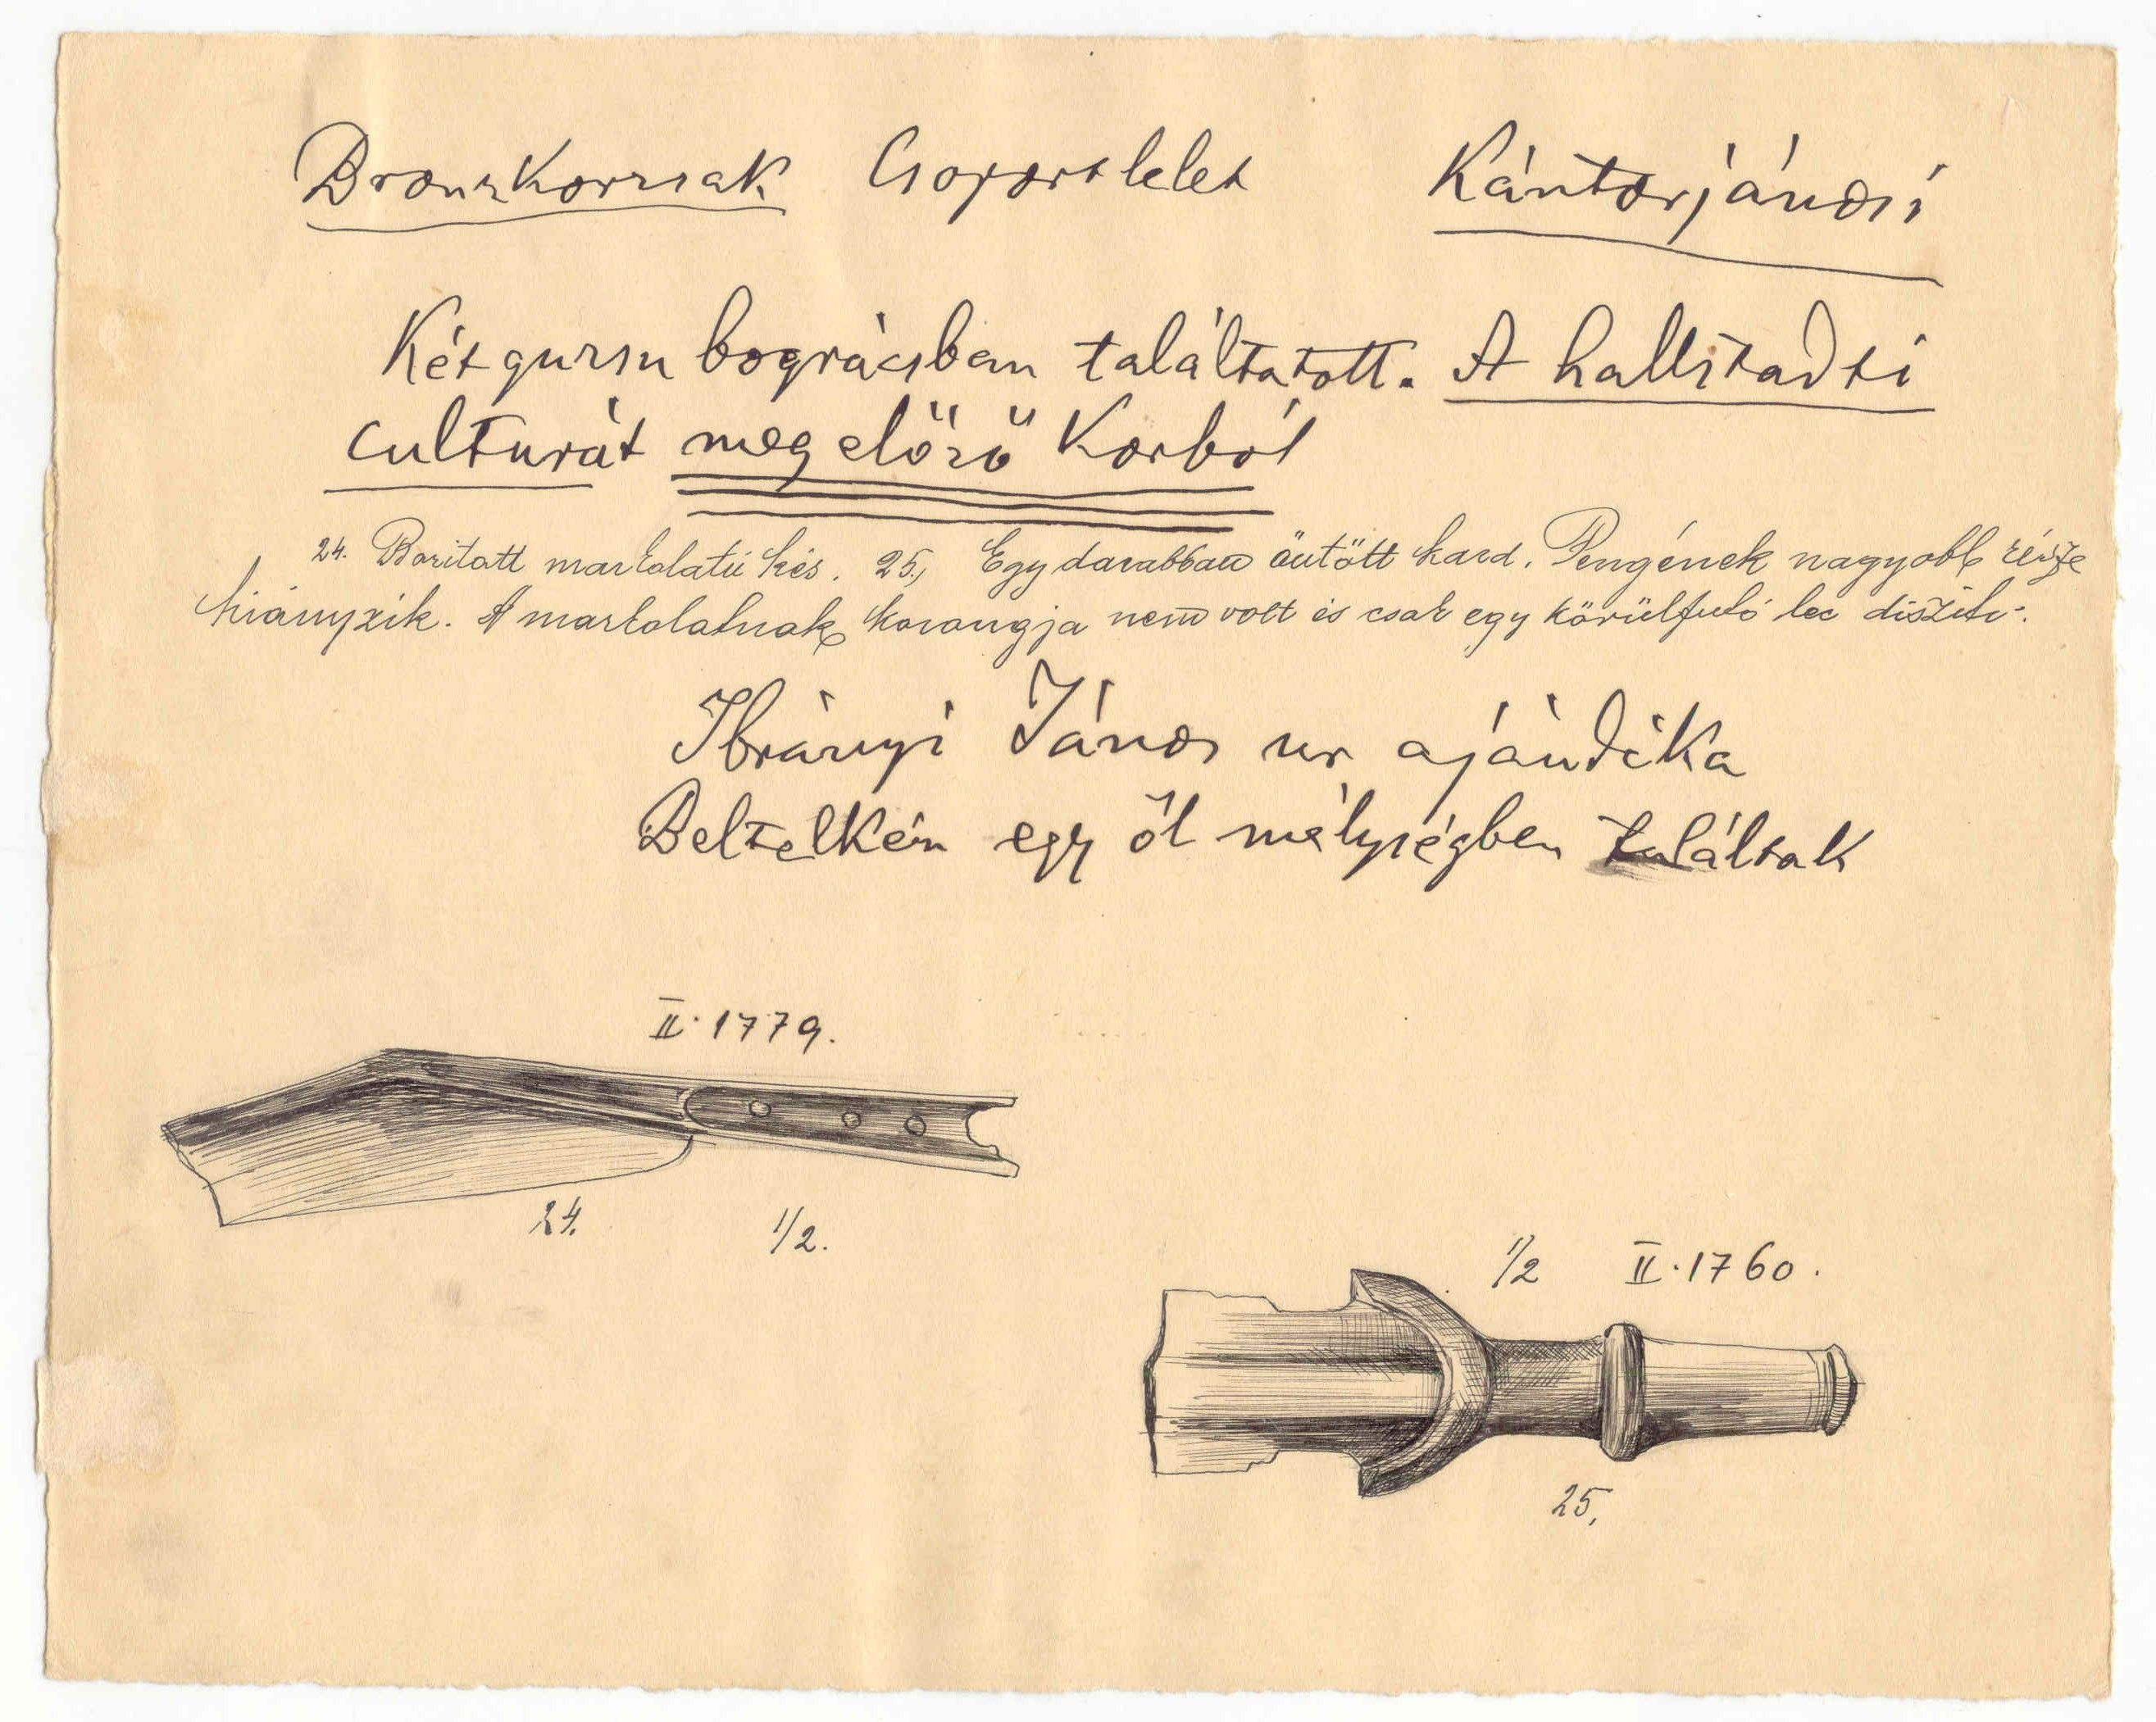 Bronzkorszak Csoportlelet Kántorjánosi
Két gursu bográcsban találtatott. A hallstadti
culturát megelőző korból
24. Boritott markolatú kés. 25., Egy darabban öntött kard. Pengének nagyobb része
hiányzik. A markolatnak korongja nem volt és csak egy körülfutó léc disziti.
Ibrányi János ur ajándéka
Beltelkén egy öl mélységben találtak
II. 1779.
24. 1/2.
1/2 II. 1760.
25,